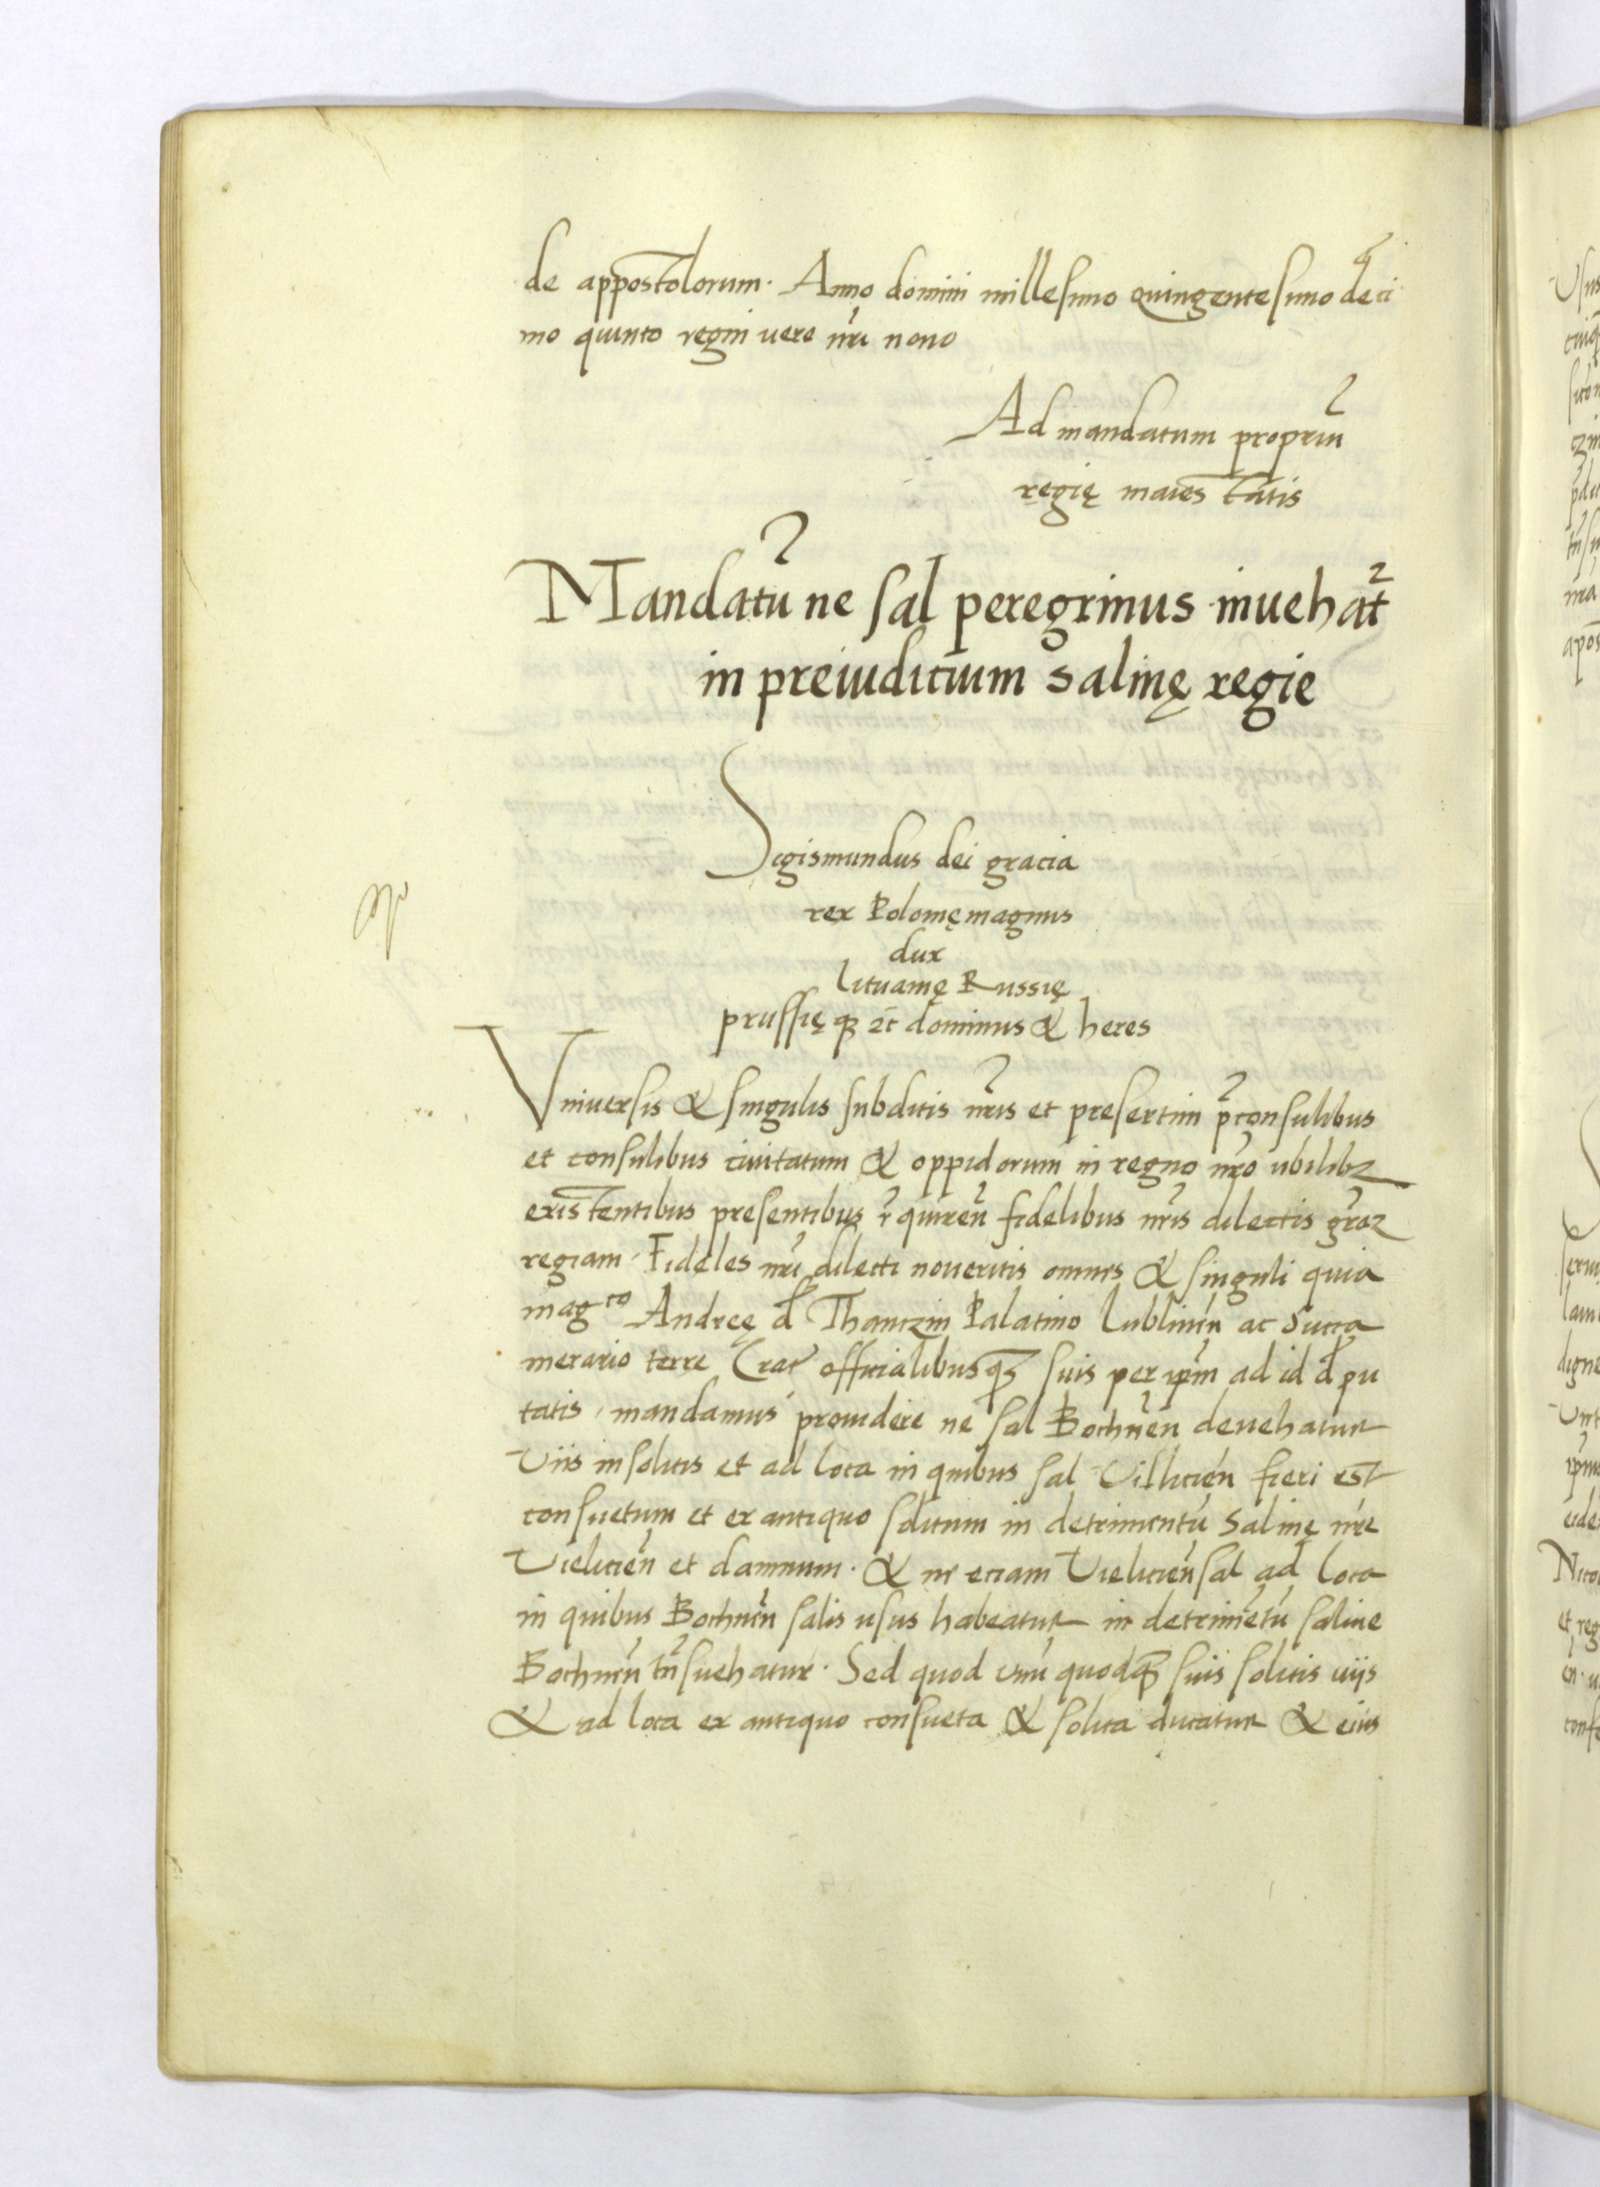 de appostolorum. Anno domini millesimo quingentesimo deci
mo quinto regni vero nr̃i nono
Ad mandatum propriũ
regię maiestatis
Mandatũ ne sal peregrinus inuehat̃
in preiudicium salinę regie
Sigismundus dei gracia
rex Polonię magnus
dux
lituanię Russię
prussię qꝫ ⁊c̃ dominus & heres
Vniuersis & singulis subditis nr̃is et presertim p̃consulibus
et consulibus ciuitatum & oppidorum in regno nr̃o ubilibꝫ
existentibus presentibus r̃quireñ fidelibus nr̃is dilectis gr̃aꝫ
regiam. Fideles nr̃i dilecti noueritis omnes & singuli quia
magco Andreę d̃ Thanczin Palatino lublineñ ac Succa
merario terre Crac̃ officialibusqꝫ suis per ip̃m ad id d̃pu
tatis, mandamus prouidere ne sal Bochneñ deuehatur
Viis insolitis et ad loca in quibus sal Villicień fieri est
consuetum et ex antiquo solitum in detrimentũ salinę nr̃e
Vielicień et damnum. & ne eciam Vielicień sal ad loca
in quibus Bochneñ salis usus habeatur in detrimẽtũ saline
Bochneñ tñsuehatur. Sed quod vnũ quodqꝫ suis solitis uijs
& ad loca ex antiquo consueta & solita ducatur & eius